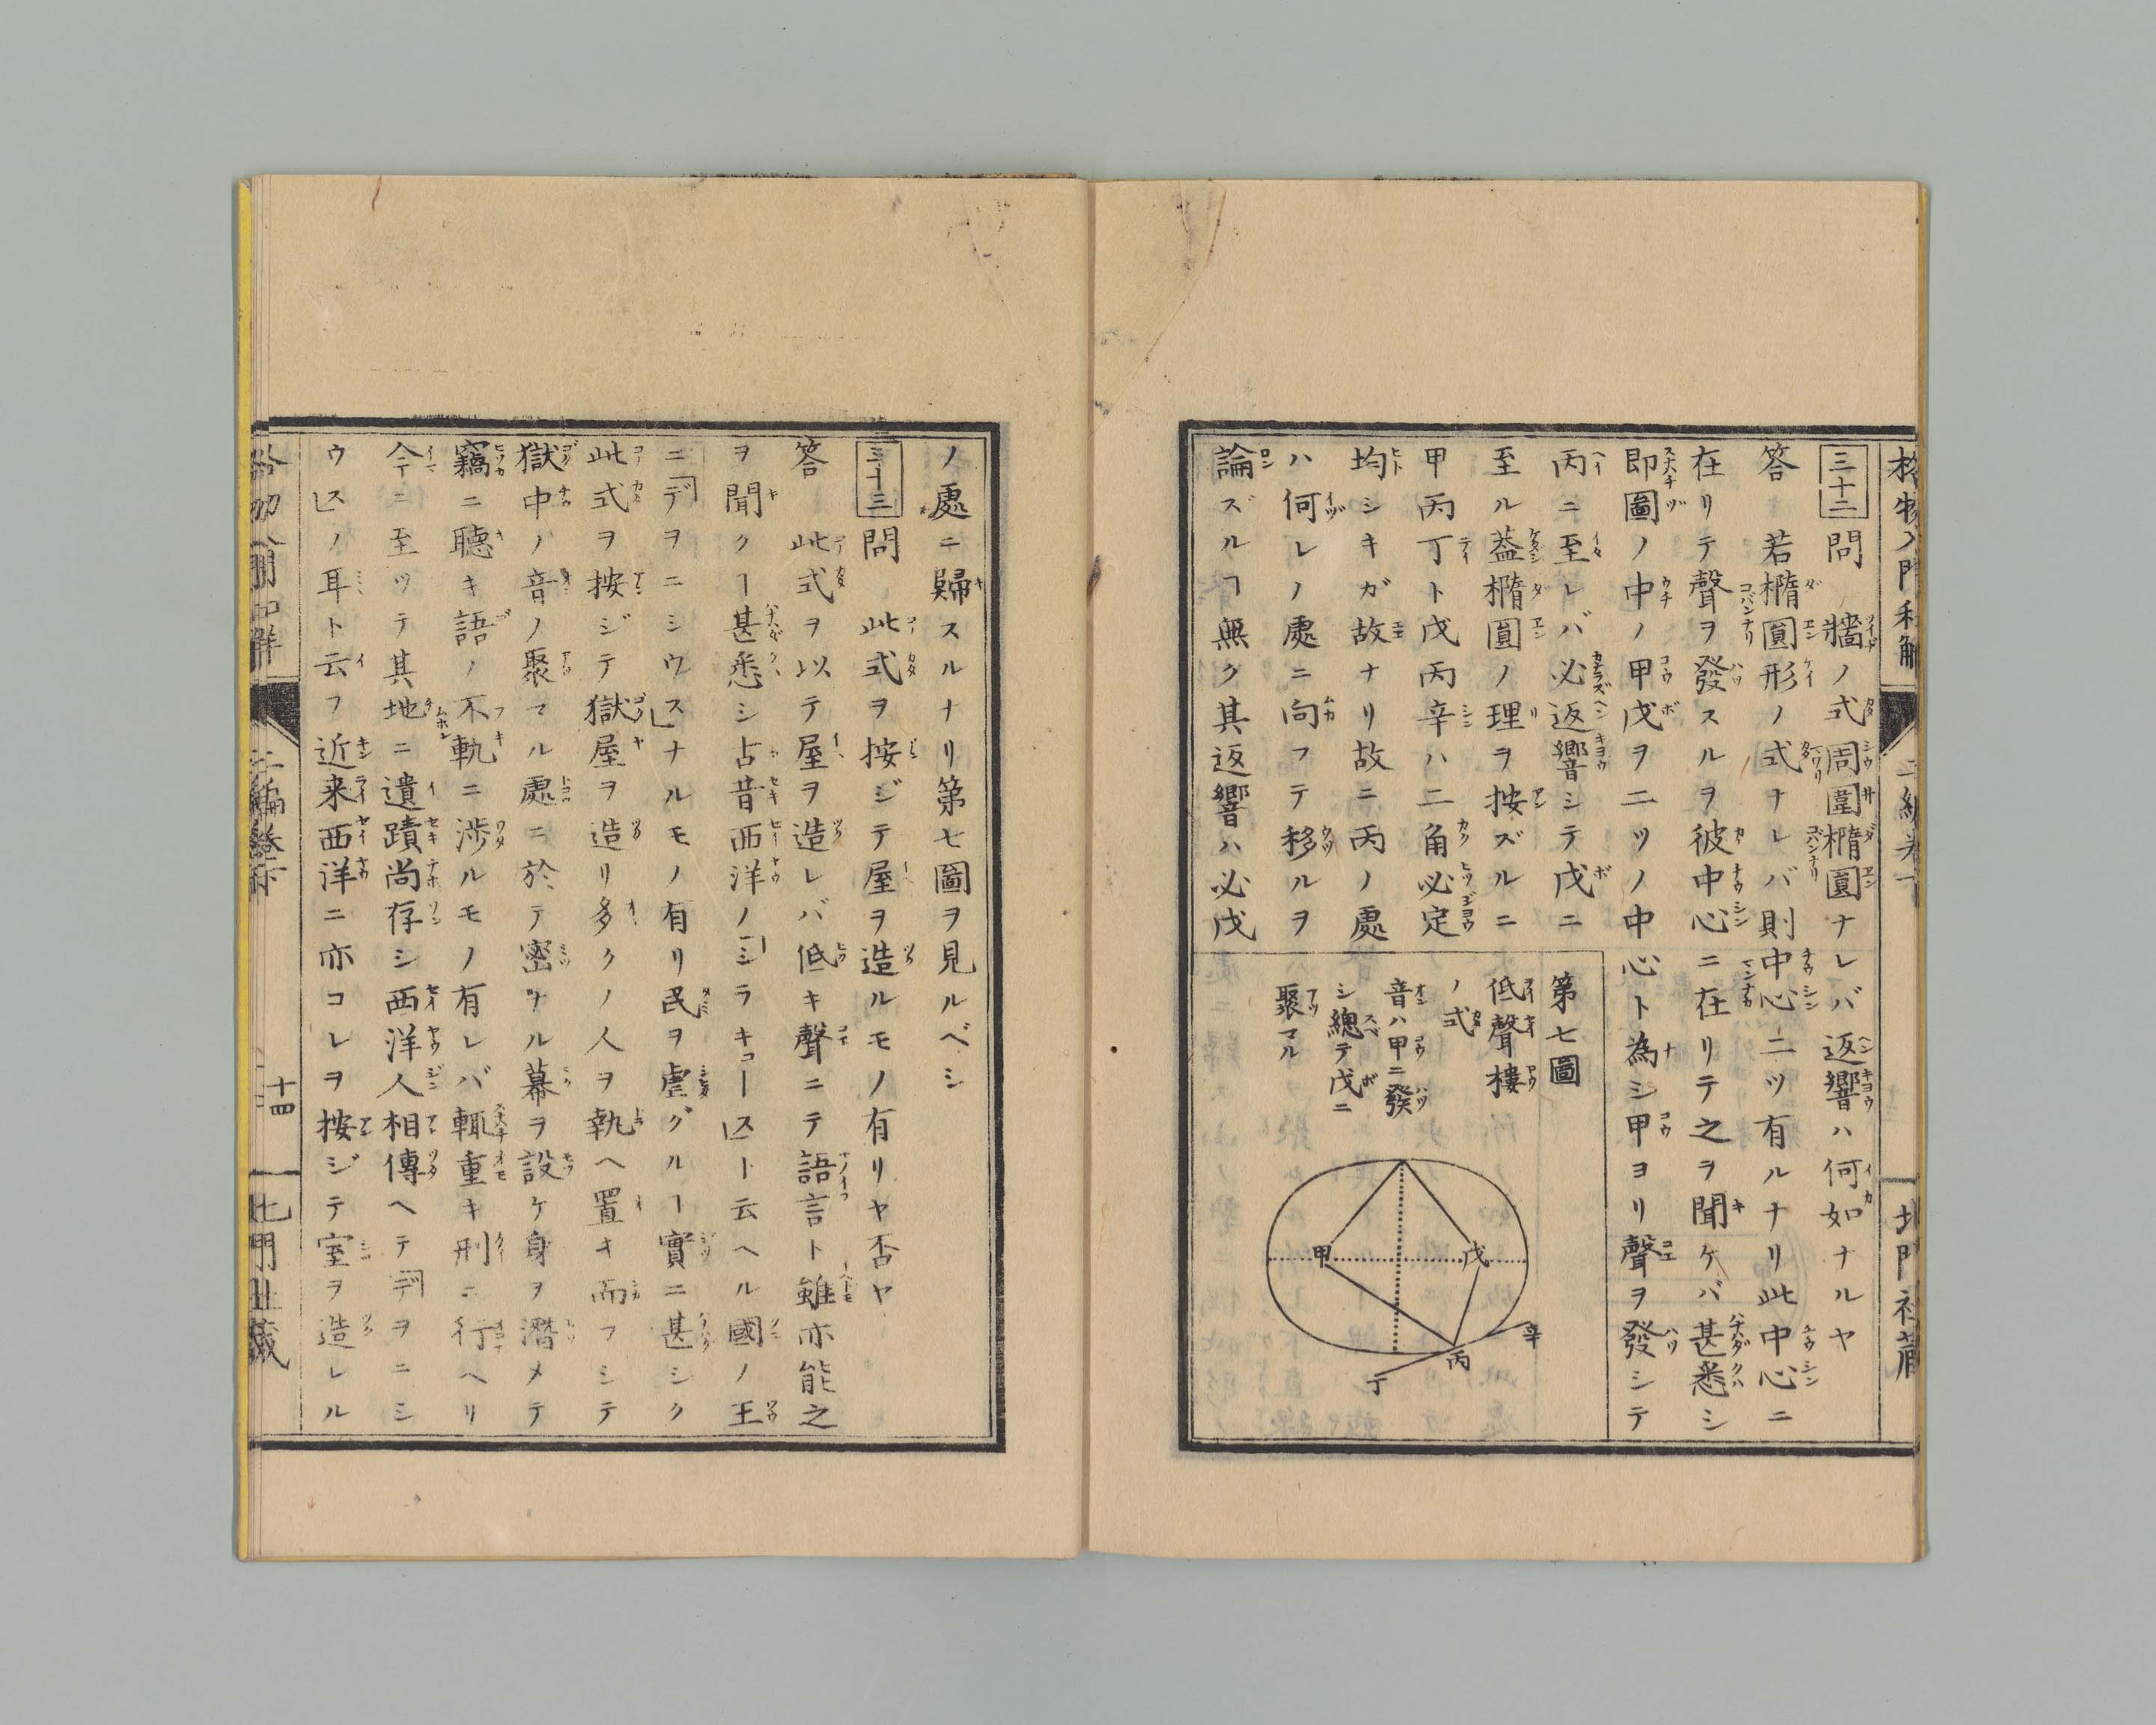 格物入門和解
二編卷下
北門社藏
三十二 問 牆ノ式周圍橢圓ナレバ返響ハ何如ナルヤ
答 若橢圓形ノ式ナレバ則中心二ツ有ルナリ此中心ニ
在リテ聲ヲ發スルヲ彼中心ニ在リテ之ヲ聞ケバ甚悉シ
即圖ノ中ノ甲戊ヲ二ツノ中心ト為シ甲ヨリ聲ヲ發シテ
丙ニ至レバ必返響シテ戊ニ
至ル葢橢圓ノ理ヲ按ズルニ
甲丙丁ト戊丙辛ハ二角必定
均シキガ故ナリ故ニ丙ノ處
ハ何レノ處ニ向フテ移ルヲ
論ズルヿ無ク其返響ハ必戊
第七圖
低聲樓
ノ式
音ハ甲ニ發
シ總テ戊ニ
聚マル
甲
戊
辛
丙
丁
ノ處ニ歸スルナリ第七圖ヲ見ルベシ
三十三 問 此式ヲ按ジテ屋ヲ造ルモノ有リヤ否ヤ
答 此式ヲ以テ屋ヲ造レバ低キ聲ニテ語言ト雖亦能之
ヲ聞クヿ甚悉シ古昔西洋ノ「シラキュース」ト云ヘル國ノ王
ニ「デヲニシウス」ナルモノ有リ民ヲ虐グルヿ實ニ甚シク
此式ヲ按ジテ獄屋ヲ造リ多クノ人ヲ執ヘ置キ而フシテ
獄中ノ音ノ聚マル處ニ於テ密ナル幕ヲ設ケ身ヲ潛メテ
竊ニ聽キ語ノ不軌ニ渉ルモノ有レバ輒重キ刑ニ行ヘリ
今ニ至ツテ其地ニ遺蹟尚存シ西洋人相傳ヘテ「デヲニシ
ウス」ノ耳ト云フ近来西洋ニ亦コレヲ按ジテ室ヲ造レル
格物入門和解
二編卷下
十四
北門社藏